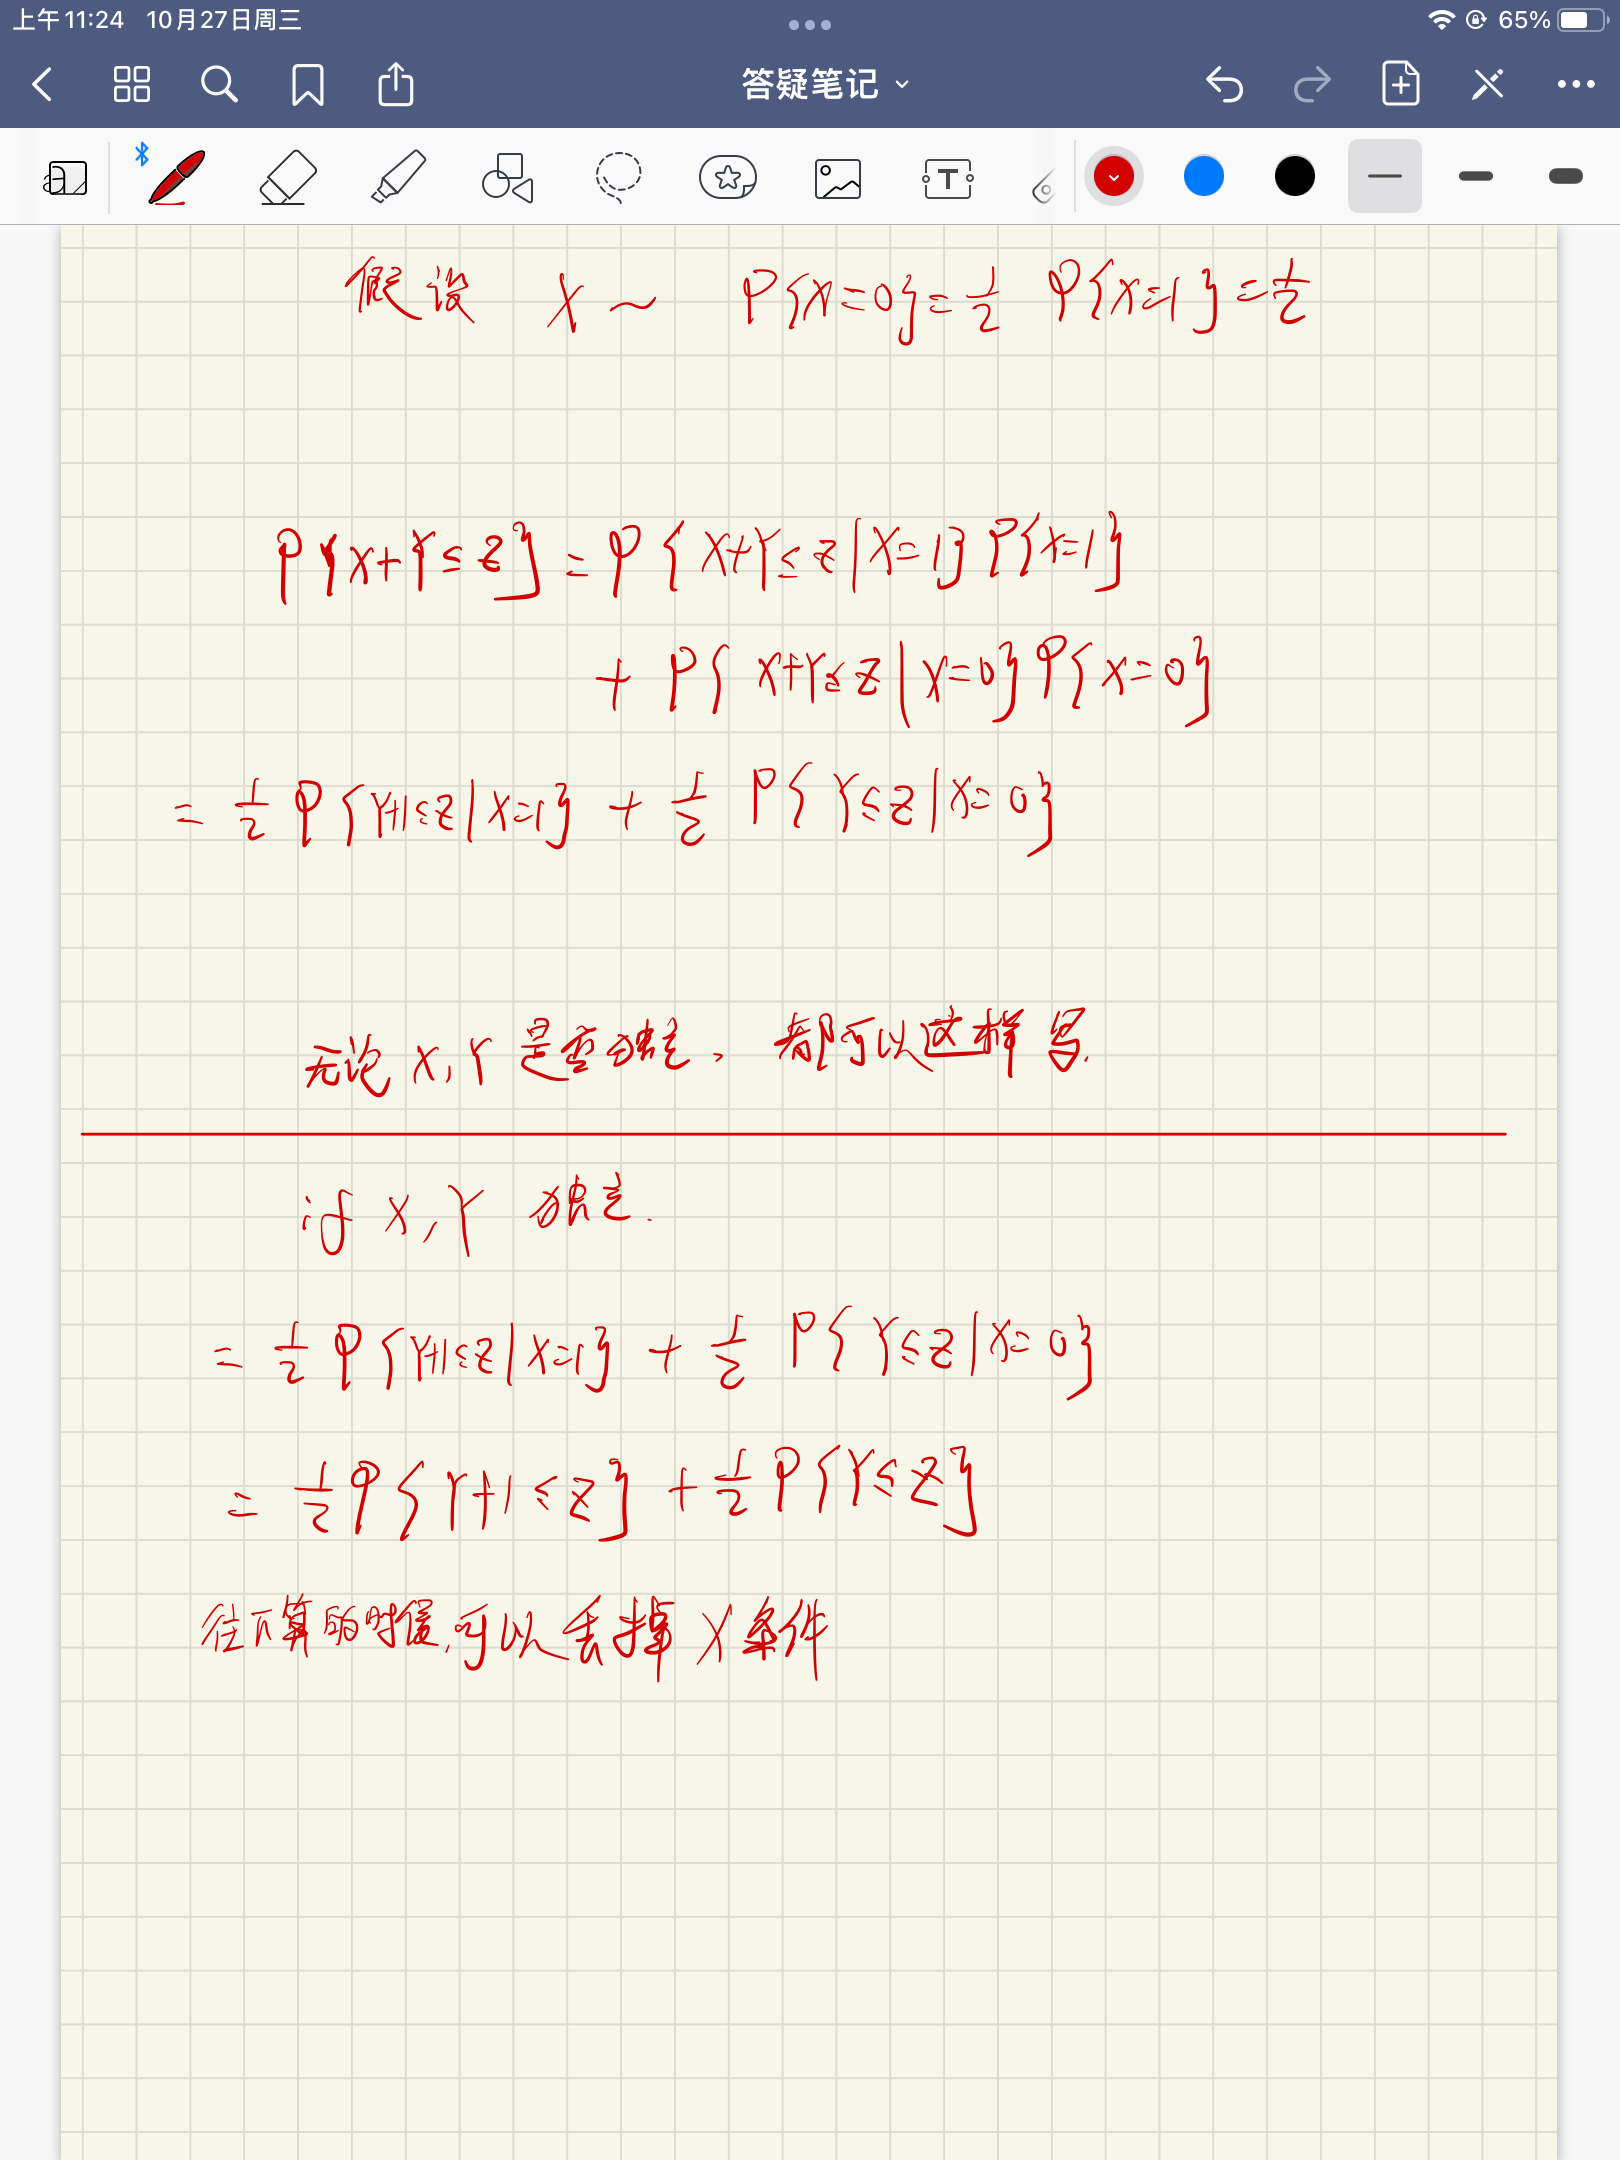 上午11:24 10月27日周三 65%
答疑笔记
假设 X ~ P{X=0}=1/2 P{X=1}=1/2
P{X+Y≤z}=P{X+Y≤z|X=1}P{X=1}
+ P{X+Y≤z|X=0}P{X=0}
= 1/2 P{Y+1≤z|X=1} + 1/2 P{Y≤z|X=0}
无论X,Y是否独立,都可以这样写.
if X,Y 独立.
= 1/2 P{Y+1≤z|X=1} + 1/2 P{Y≤z|X=0}
= 1/2 P{Y+1≤z} + 1/2 P{Y≤z}
往下算的时候,可以丢掉X条件